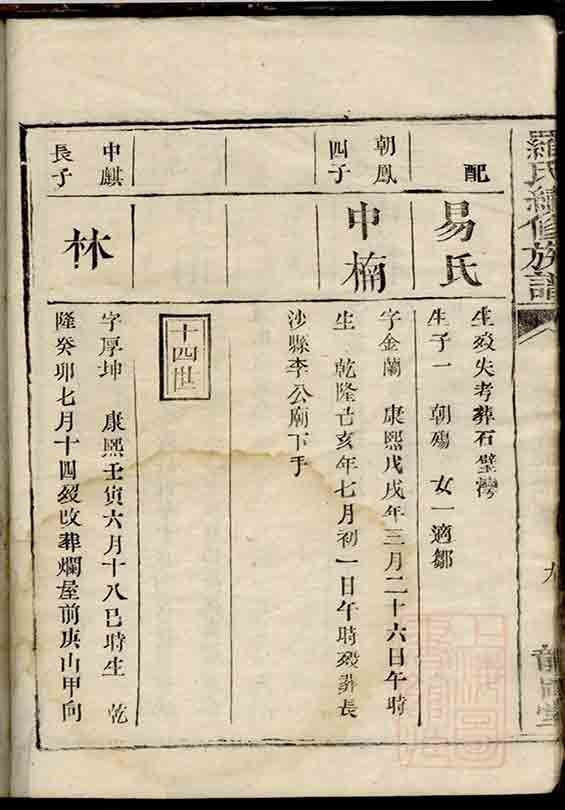 羅氏續修族譜
九
配
易氏
生歿失考葬石壁灣
生子一 朝殤 女一適鄒
朝鳳
四子
中楠
字金蘭 康熙戊戌年三月二十六日午時
生 乾隆己亥年七月初一日午時歿葬長
沙縣李公廟下手
十四世
中麒
長子
林
字厚坤 康熙壬寅六月十八巳時生 乾
隆癸卯七月十四歿改葬爛屋前庚山甲向